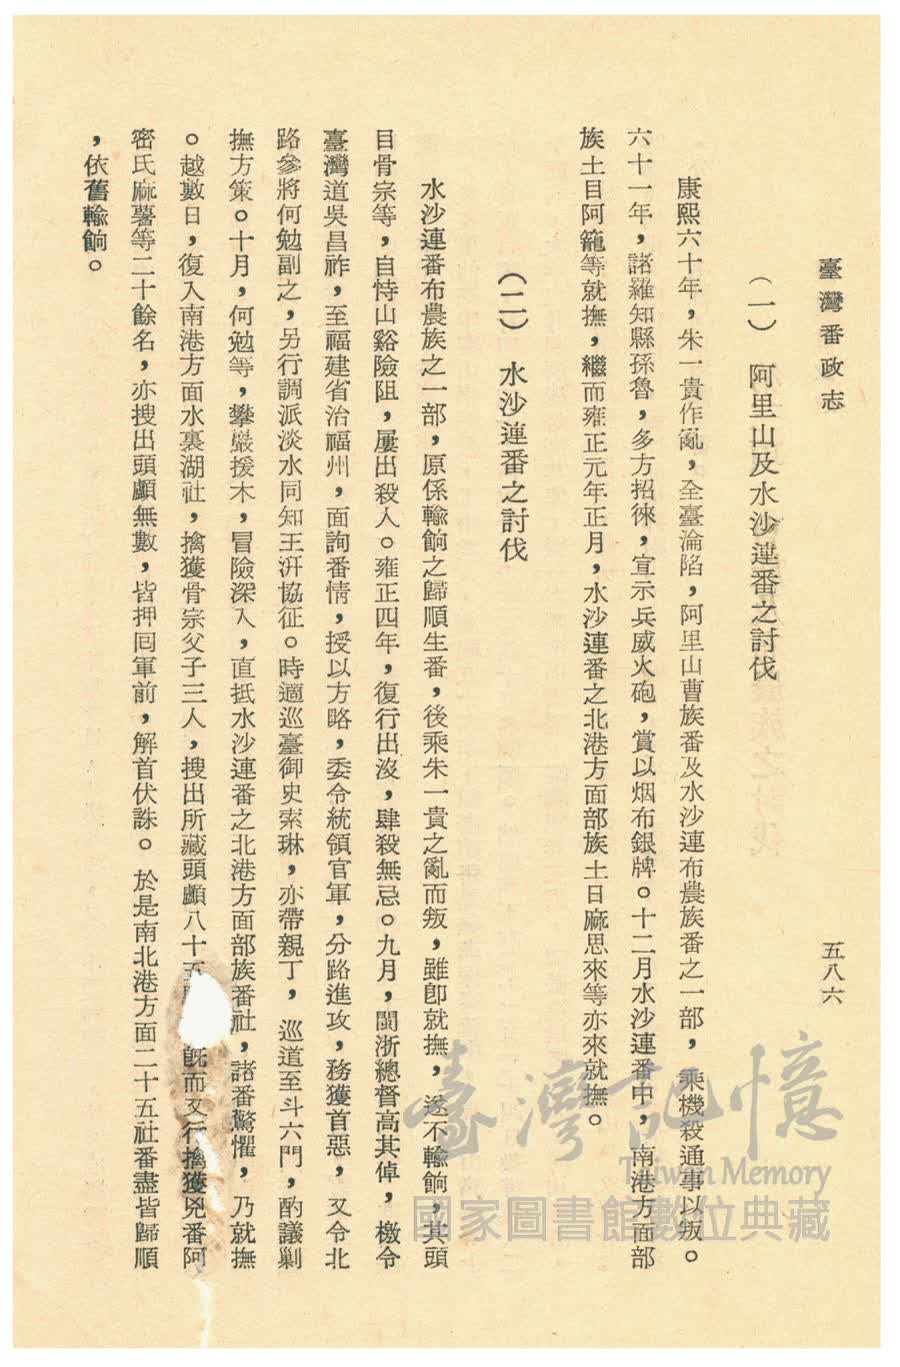 臺灣番政志
五八六
(一)　阿里山及水沙連番之討伐
康熙六十年，朱一貴作亂，全臺淪陷，阿里山曹族番及水沙連布農族番之一部，乘機殺通事以叛。
六十一年，諸羅知縣孫魯，多方招徠，宣示兵威火砲，賞以烟布銀牌。十二月水沙連番中，南港方面部
族土目阿籠等就撫，繼而雍正元年正月，水沙連番之北港方面部族土日麻思來等亦來就撫。
(二)　水沙連番之討伐
水沙連番布農族之一部，原係輸餉之歸順生番，後乘朱一貴之亂而叛，雖卽就撫，遂不輸餉，其頭
目骨宗等，自恃山谿險阻，屢出殺人。雍正四年，復行出沒，肆殺無忌。九月，閩浙總督高其倬，檄令
臺灣道吳昌祚，至福建省治福州，面詢番情，授以方略，委令統領官軍，分路進攻，務獲首惡，又令北
路參將何勉副之，另行調派淡水同知王汧協征。時適巡臺御史索琳，亦帶親丁，巡道至斗六門，酌議剿
撫方策。十月，何勉等，攀巖援木，冒險深入，直抵水沙連番之北港方面部族番社，諸番驚懼，乃就撫
。越數日，復入南港方面水裏湖社，擒獲骨宗父子三人，搜出所藏頭顱八十五　旣而又行擒獲兇番阿
密氏麻薯等二十餘名，亦搜出頭顱無數，皆押囘軍前，解首伏誅。於是南北港方面二十五社番盡皆歸順
，依舊輸餉。
臺灣記憶
Taiwan Memory
國家圖書館數位典藏